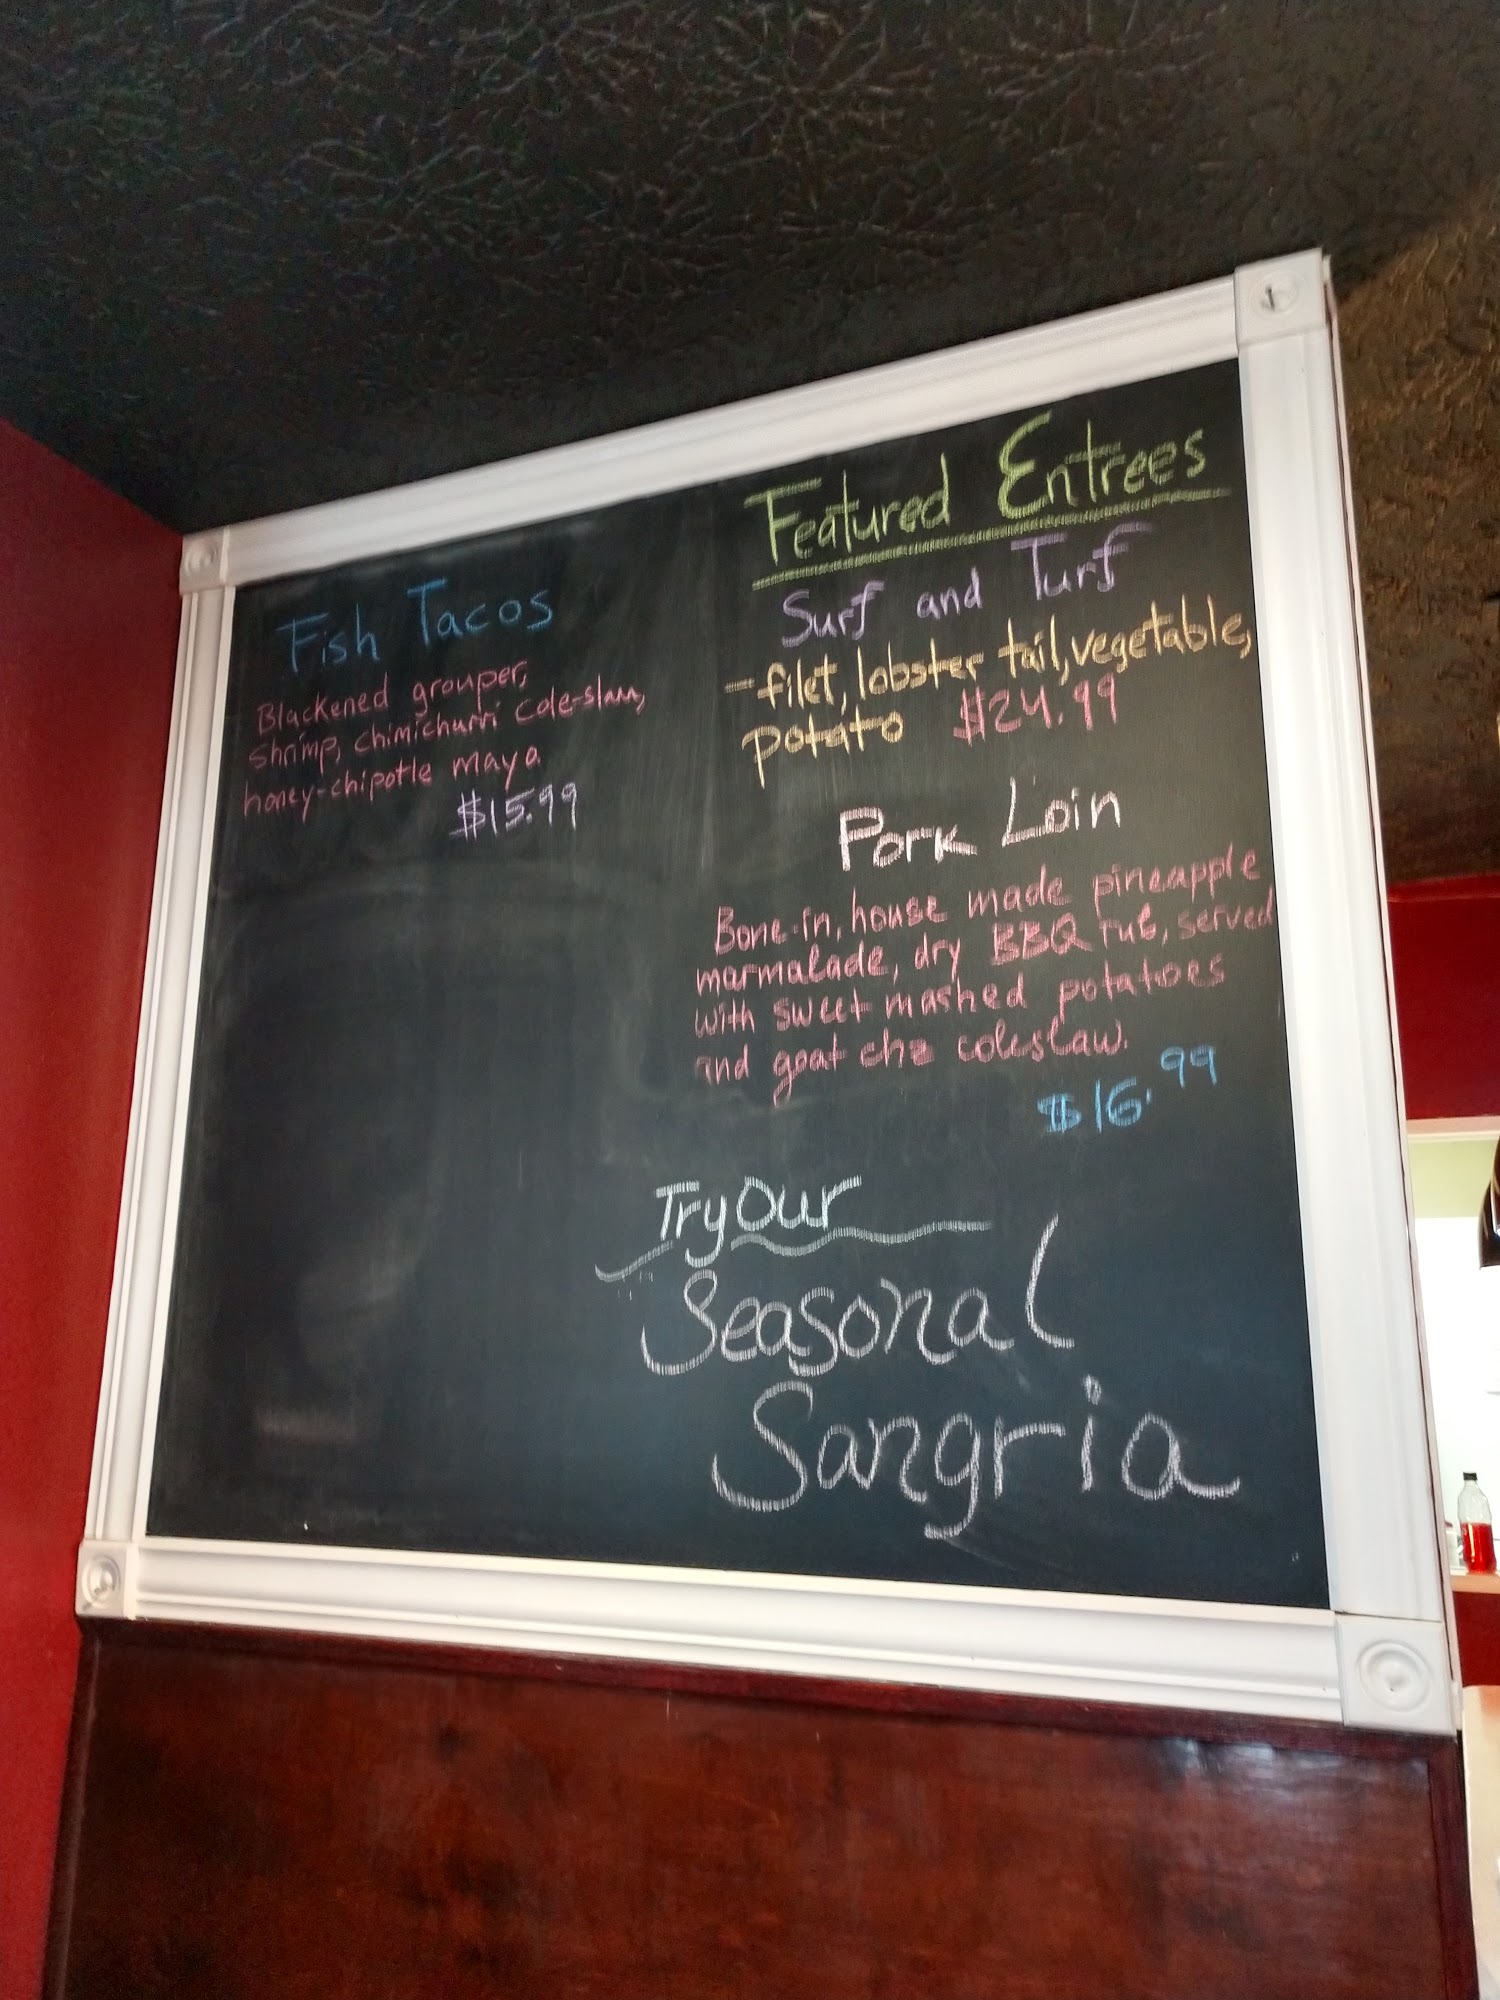 Fish Tacos
Blackened grouper,
shrimp, chimichurri cole-slaw,
honey-chipotle maya
$15.99
Featured Entrees
Surf and Turf
-filet, lobster tail, vegetable,
potato $24.99
Pork Loin
Bone-in, house made pineapple
marmalade, dry BBQ rub, served
with sweet mashed potatoes
and goat chz coleslaw.
$16.99
Try Our
Seasonal
Sangria